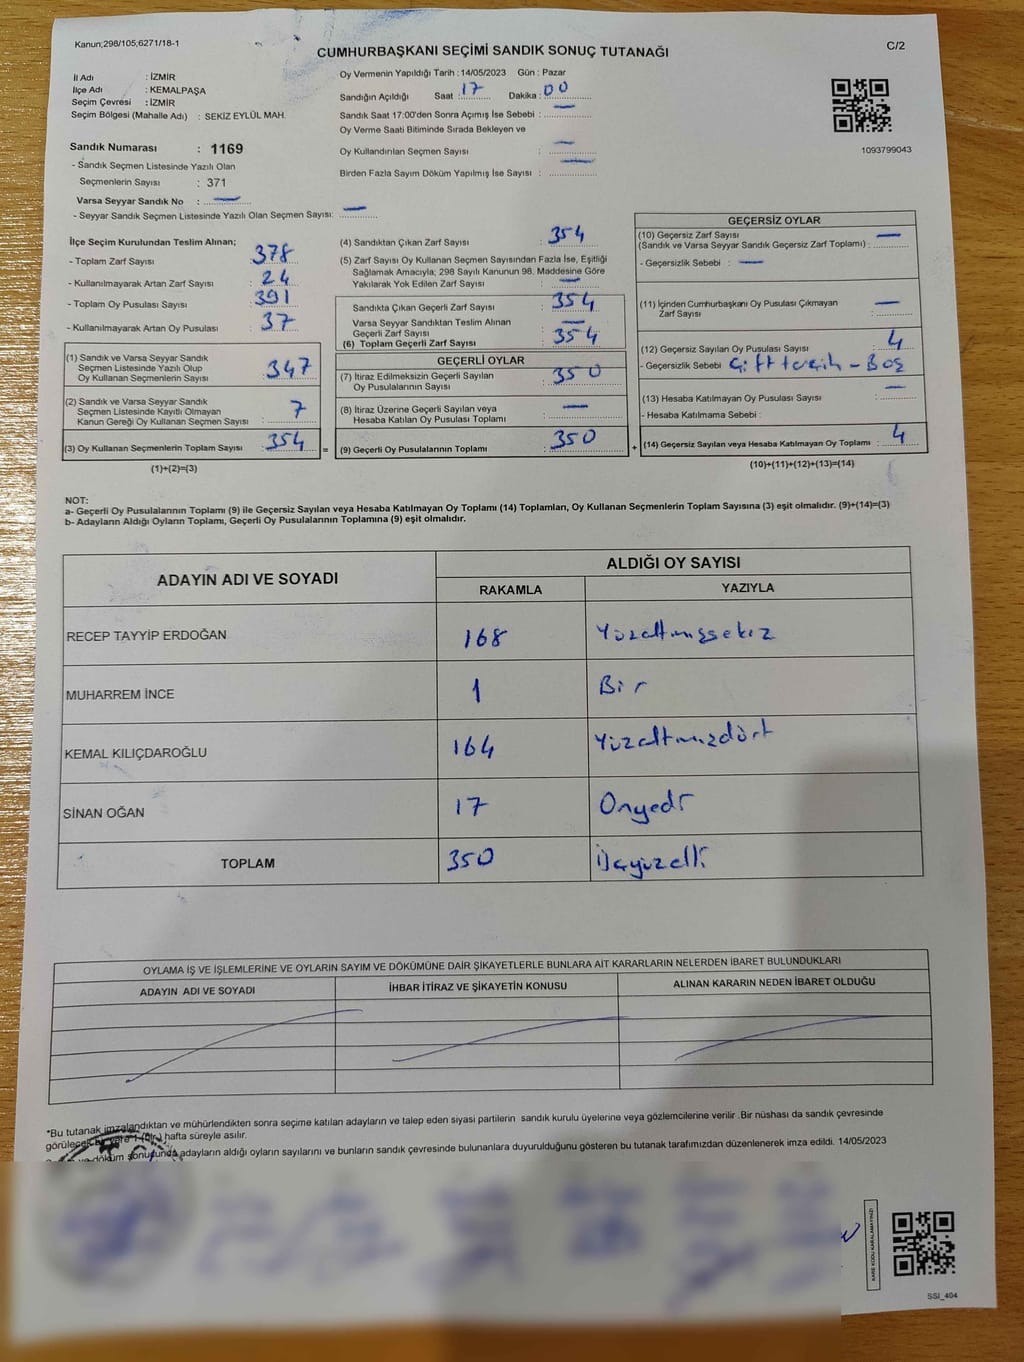 Kanun;298/105;6271/18-1
CUMHURBAŞKANI SEÇİMİ SANDIK SONUÇ TUTANAĞI
C/2
İl Adı : İZMİR
İlçe Adı : KEMALPAŞA
Seçim Çevresi : İZMİR
Seçim Bölgesi (Mahalle Adı) : SEKİZ EYLÜL MAH.
Sandık Numarası : 1169
- Sandık Seçmen Listesinde Yazılı Olan
Seçmenlerin Sayısı : 371
Varsa Seyyar Sandık No : —
- Seyyar Sandık Seçmen Listesinde Yazılı Olan Seçmen Sayısı: —
Oy Vermenin Yapıldığı Tarih : 14/05/2023 Gün : Pazar
Sandığın Açıldığı Saat : 17 Dakika : 00
Sandık Saat 17:00'den Sonra Açımış İse Sebebi : —
Oy Verme Saati Bitiminde Sırada Bekleyen ve
Oy Kullandırılan Seçmen Sayısı : —
Birden Fazla Sayım Döküm Yapılmış İse Sayısı : —
1093799043
İlçe Seçim Kurulundan Teslim Alınan;
- Toplam Zarf Sayısı : 378
- Kullanılmayarak Artan Zarf Sayısı : 24
- Toplam Oy Pusulası Sayısı : 391
- Kullanılmayarak Artan Oy Pusulası : 37
(1) Sandık ve Varsa Seyyar Sandık
Seçmen Listesinde Yazılı Olup
Oy Kullanan Seçmenlerin Sayısı : 347
(2) Sandık ve Varsa Seyyar Sandık
Seçmen Listesinde Kayıtlı Olmayan
Kanun Gereği Oy Kullanan Seçmen Sayısı : 7
(3) Oy Kullanan Seçmenlerin Toplam Sayısı : 354 =
(1)+(2)=(3)
(4) Sandıktan Çıkan Zarf Sayısı : 354
(5) Zarf Sayısı Oy Kullanan Seçmen Sayısından Fazla İse, Eşitliği
Sağlamak Amacıyla; 298 Sayılı Kanunun 98. Maddesine Göre
Yakılarak Yok Edilen Zarf Sayısı : —
Sandıkta Çıkan Geçerli Zarf Sayısı : 354
Varsa Seyyar Sandıktan Teslim Alınan
Geçerli Zarf Sayısı : —
(6) Toplam Geçerli Zarf Sayısı : 354
GEÇERLİ OYLAR
(7) İtiraz Edilmeksizin Geçerli Sayılan
Oy Pusulalarının Sayısı : 350
(8) İtiraz Üzerine Geçerli Sayılan veya
Hesaba Katılan Oy Pusulası Toplamı : —
(9) Geçerli Oy Pusulalarının Toplamı : 350 +
GEÇERSİZ OYLAR
(10) Geçersiz Zarf Sayısı
(Sandık ve Varsa Seyyar Sandık Geçersiz Zarf Toplamı) : —
- Geçersizlik Sebebi : —
(11) İçinden Cumhurbaşkanı Oy Pusulası Çıkmayan
Zarf Sayısı : —
(12) Geçersiz Sayılan Oy Pusulası Sayısı : 4
- Geçersizlik Sebebi Çift tercih - Boş
(13) Hesaba Katılmayan Oy Pusulası Sayısı : —
- Hesaba Katılmama Sebebi :
(14) Geçersiz Sayılan veya Hesaba Katılmayan Oy Toplamı : 4
(10)+(11)+(12)+(13)=(14)
NOT:
a- Geçerli Oy Pusulalarının Toplamı (9) ile Geçersiz Sayılan veya Hesaba Katılmayan Oy Toplamı (14) Toplamları, Oy Kullanan Seçmenlerin Toplam Sayısına (3) eşit olmalıdır. (9)+(14)=(3)
b- Adayların Aldığı Oyların Toplamı, Geçerli Oy Pusulalarının Toplamına (9) eşit olmalıdır.
ADAYIN ADI VE SOYADI
ALDIĞI OY SAYISI
RAKAMLA YAZIYLA
RECEP TAYYİP ERDOĞAN 168 Yüzaltmışsekiz
MUHARREM İNCE 1 Bir
KEMAL KILIÇDAROĞLU 164 Yüzaltmışdört
SİNAN OĞAN 17 Onyedi
TOPLAM 350 Üçyüzelli
OYLAMA İŞ VE İŞLEMLERİNE VE OYLARIN SAYIM VE DÖKÜMÜNE DAİR ŞİKAYETLERLE BUNLARA AİT KARARLARIN NELERDEN İBARET BULUNDUKLARI
ADAYIN ADI VE SOYADI İHBAR İTİRAZ VE ŞİKAYETİN KONUSU ALINAN KARARIN NEDEN İBARET OLDUĞU
*Bu tutanak imzalandıktan ve mühürlendikten sonra seçime katılan adayların ve talep eden siyasi partilerin sandık kurulu üyelerine veya gözlemcilerine verilir .Bir nüshası da sandık çevresinde
görülecek bir yere 1 (bir) hafta süreyle asılır.
ve döküm sonucunda adayların aldığı oyların sayılarını ve bunların sandık çevresinde bulunanlara duyurulduğunu gösteren bu tutanak tarafımızdan düzenlenerek imza edildi. 14/05/2023
KARE KODU KARALAMAYINIZ!
SSI_404